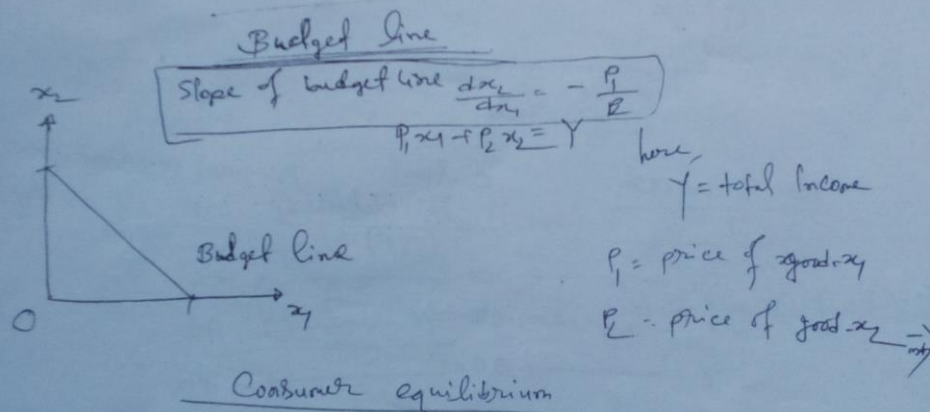 Budget line
Slope of budget line dx₂/dx₁ = - P₁/P₂
P₁x₁ + P₂x₂ = Y
here,
Y = total Income
x₂
Budget line
P₁ = price of good-x₁
P₂ - price of good-x₂
O
x₁
Consumer equilibrium